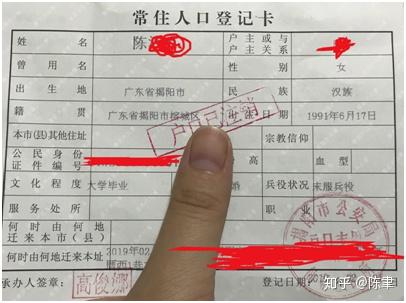 常住人口登记卡
姓名 陈 户主或与户主关系
曾用名 性别 女
出生地 广东省揭阳市 民族 汉族
籍贯 广东省揭阳市榕城区 出生日期 1991年6月17日
户口已注销
本市(县)其他住址 宗教信仰
公民身份证件编号 高 血型
文化程度 大学毕业 婚 兵役状况 未服兵役
服务处所 职业
何时由何地迁来本市(县) 2019年02
何时由何地迁来本址
承办人签章: 高俊娜 登记日期:
知乎 @陈聿